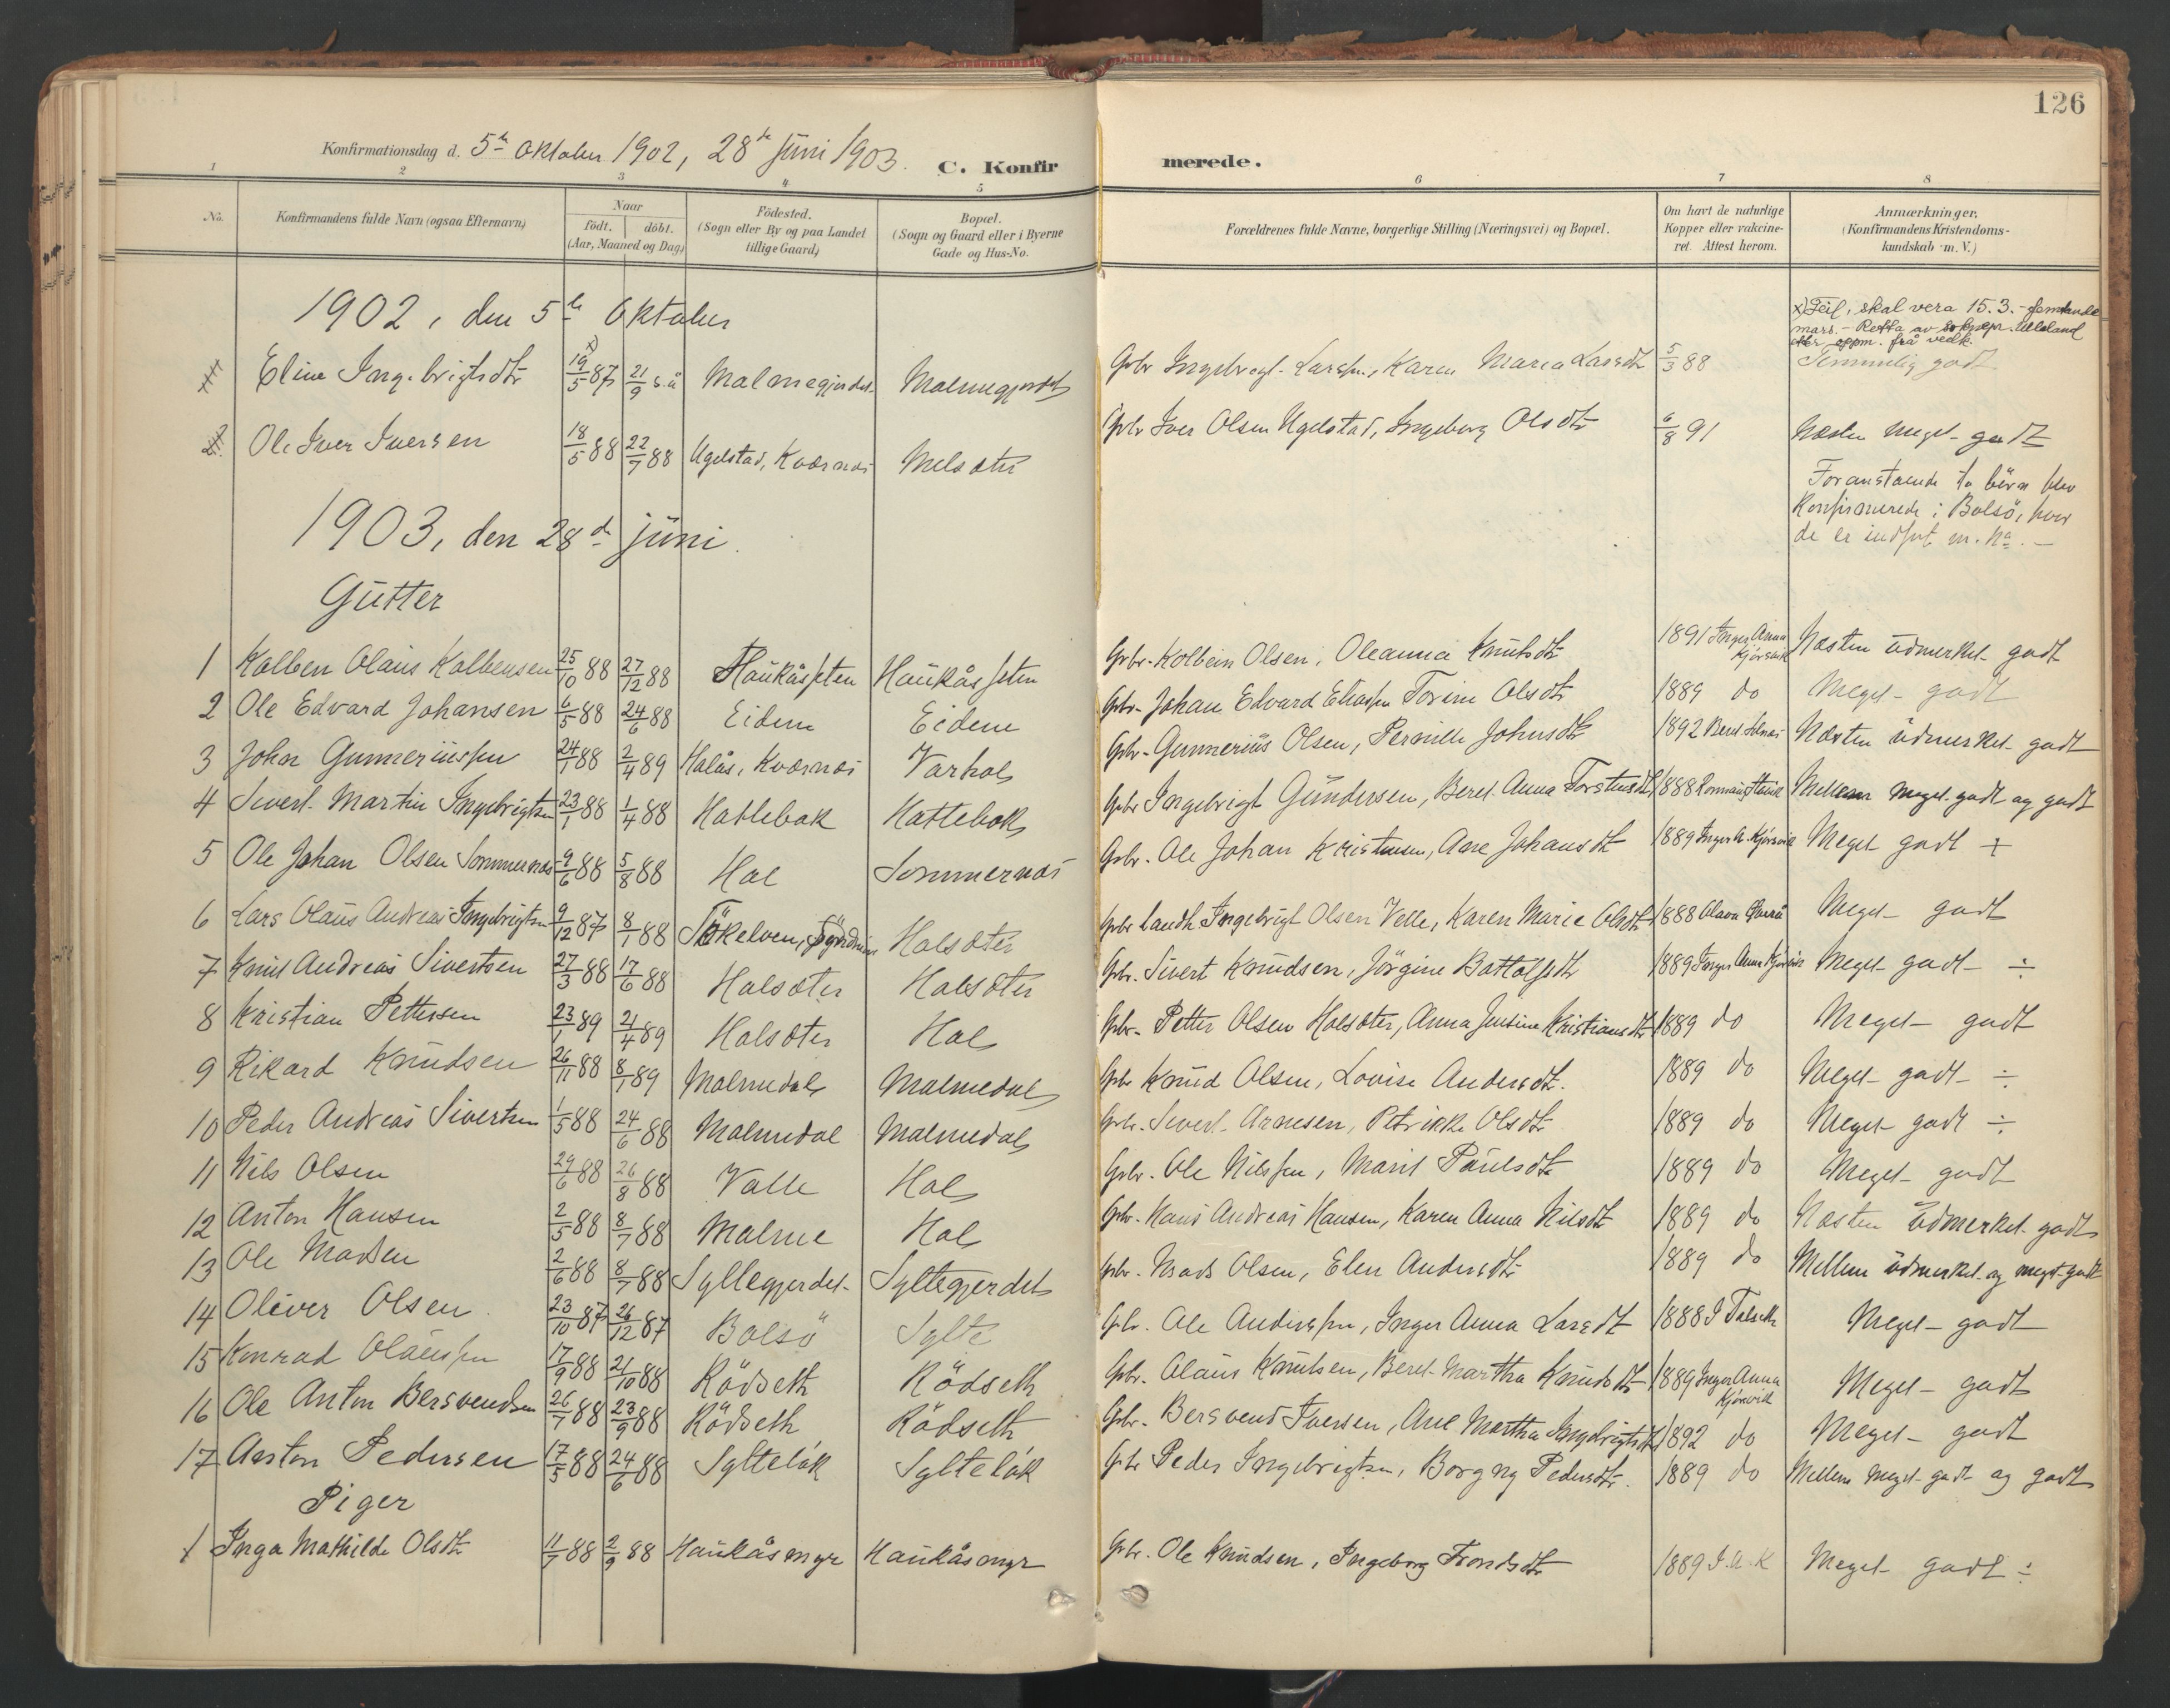 126
Konfirmationsdag d. 5te Oktober 1902, 28de juni 1903. C. Konfir merede.
1 2 3 4 5 6 7 8
No. Konfirmandens fulde Navn (ogsaa Efternavn) Naar födt. döbt. (Aar, Maaned og Dag) Födested. (Sogn eller By og paa Landet tillige Gaard) Bopæl. (Sogn og Gaard eller i Byerne Gade og Hus-No. Forældrenes fulde Navne, borgerlige Stilling (Næringsvei) og Bopæl. Om havt de naturlige Kopper eller vakcineret. Attest herom. Anmærkninger. (Konfirmandens Kristendomskundskab m. V.)
1902, den 5te Oktober
x) Feil, skal vera 15.3. - femtande
mars. - Retta av sokepr. Ulleland
etter oppm. frå vedk.
Eline Ingebrigtsdtr 19/5 87 x) 21/9 s.å Malmegjerdet Malmegjerdet Gbr Ingebregt Larssen, Karen Maria Larsdtr 5/3 88 Temmelig godt
2 Ole Iver Iversen 18/5 88 22/7 88 Ugelstad, Kværnæs Melsæter Gbr Iver Olsen Ugelstad, Ingeborg Olsdtr 6/8 91 Næsten meget godt
Foranstaaende to börn blev
konfirmerede i Bolsö, hvor
de er indfört m. No. —
1903, den 28de juni.
Gutter
1 Kolben Olaus Kolbensen 25/10 88 27/12 88 Haukåsseten Haukåsseten Gbr. Kolbein Olsen, Oleanna Knutsdtr 1891 Inger Anna Kjörsvik Næsten udmerket godt
2 Ole Edvard Johansen 6/5 88 24/6 88 Eidem Eidem Gbr. Johan Edvard Eliassen Torine Olsdtr 1889 do Meget godt
3 John Gunneriussen 24/1 88 2/4 89 Halås, Kværnæs Varhol Gbr. Gunnerius Olsen, Pernille Johnsdtr 1892 Beret Næsten udmerket godt
4 Sivert Martin Ingebrigtsen 23/1 88 1/4 88 Hattebak Hattebak Gbr Ingebrigt Gundersen, Beret Anna Torstensdtr 1888 Mellem meget godt og godt
5 Ole Johan Olsen Sommernæs 9/6 88 5/8 88 Hol Sommernæs Gbr. Ole Johan Kristensen, Ane Johansdtr 1889 Inger A. Kjörsvik Meget godt +
6 Lars Olaus Andreas Ingebrigtsen 9/12 87 8/1 88 Tökelven, Halsæter Gbr Landh Ingebrigt Olsen Velle, Karen Marie Olsdtr 1888 Olava Meget godt
7 Knut Andreas Sivertsen 27/3 88 17/6 88 Holsæter Holsæter Gbr. Sivert Knudsen, Jörgine Bottolfsdtr 1889 Inger Anna Kjörsvik Meget godt ÷
8 Kristian Pettersen 23/1 89 21/4 89 Holsæter Hol Gbr. Petter Olsen Holsæter, Anna Jensine Kristiansdtr 1889 do Meget godt
9 Rikard Knudsen 26/11 88 8/1 89 Malmedal Malmedal Gbr Knud Olsen, Lovise Andersdtr. 1889 do Meget godt ÷
10 Peder Andreas Sivertsen 1/5 88 24/6 88 Malmedal Malmedal Gbr. Sivert Arnesen, Petrikke Olsdtr 1889 do Meget godt ÷
11 Nils Olsen 29/6 88 26/8 88 Valle Hol Gbr. Ole Nilssen, Marit Paulsdtr 1889 do Meget godt
12 Anton Hansen 2/5 88 8/7 88 Malme Hol Gbr. Hans Andreas Hansen, Karen Anna Nilsdtr 1889 do Næsten udmerket godt
13 Ole Madsen 2/6 88 8/7 88 Syltegjerdet Syltegjerdet Gbr. Mads Olsen, Elen Andersdtr 1889 do Mellem udmerket og meget godt
14 Oliver Olsen 23/10 87 26/12 87 Bolsö Sylte Gbr. Ole Anderssen, Inger Anna Larsdtr 1888 J Talseth Meget godt
15 Konrad Olaussen 17/9 88 21/10 88 Rödseth Rödseth Gbr. Olaus Knutsen, Beret Martha Knudsdtr 1889 Inger Anna Kjörsvik Meget godt
16 Ole Anton Bersvendsen 26/7 88 23/9 88 Rödseth Rödseth Gbr. Bersvend Iversen, Ane Martha Ingebrigtsdtr 1892 do Meget godt
17 Anton Pedersen 17/5 88 24/6 88 Syltelök Syltelök Gbr Peder Ingebrigtsen, Borgny Pedersdtr. 1889 do Mellem meget godt og godt
Piger
1 Inga Mathilde Olsdtr 11/7 88 2/9 88 Haukåsmyr Haukåsmyr Gbr. Ole Knudsen, Ingeborg Trondsdtr 1889 I.A.K Meget godt ÷